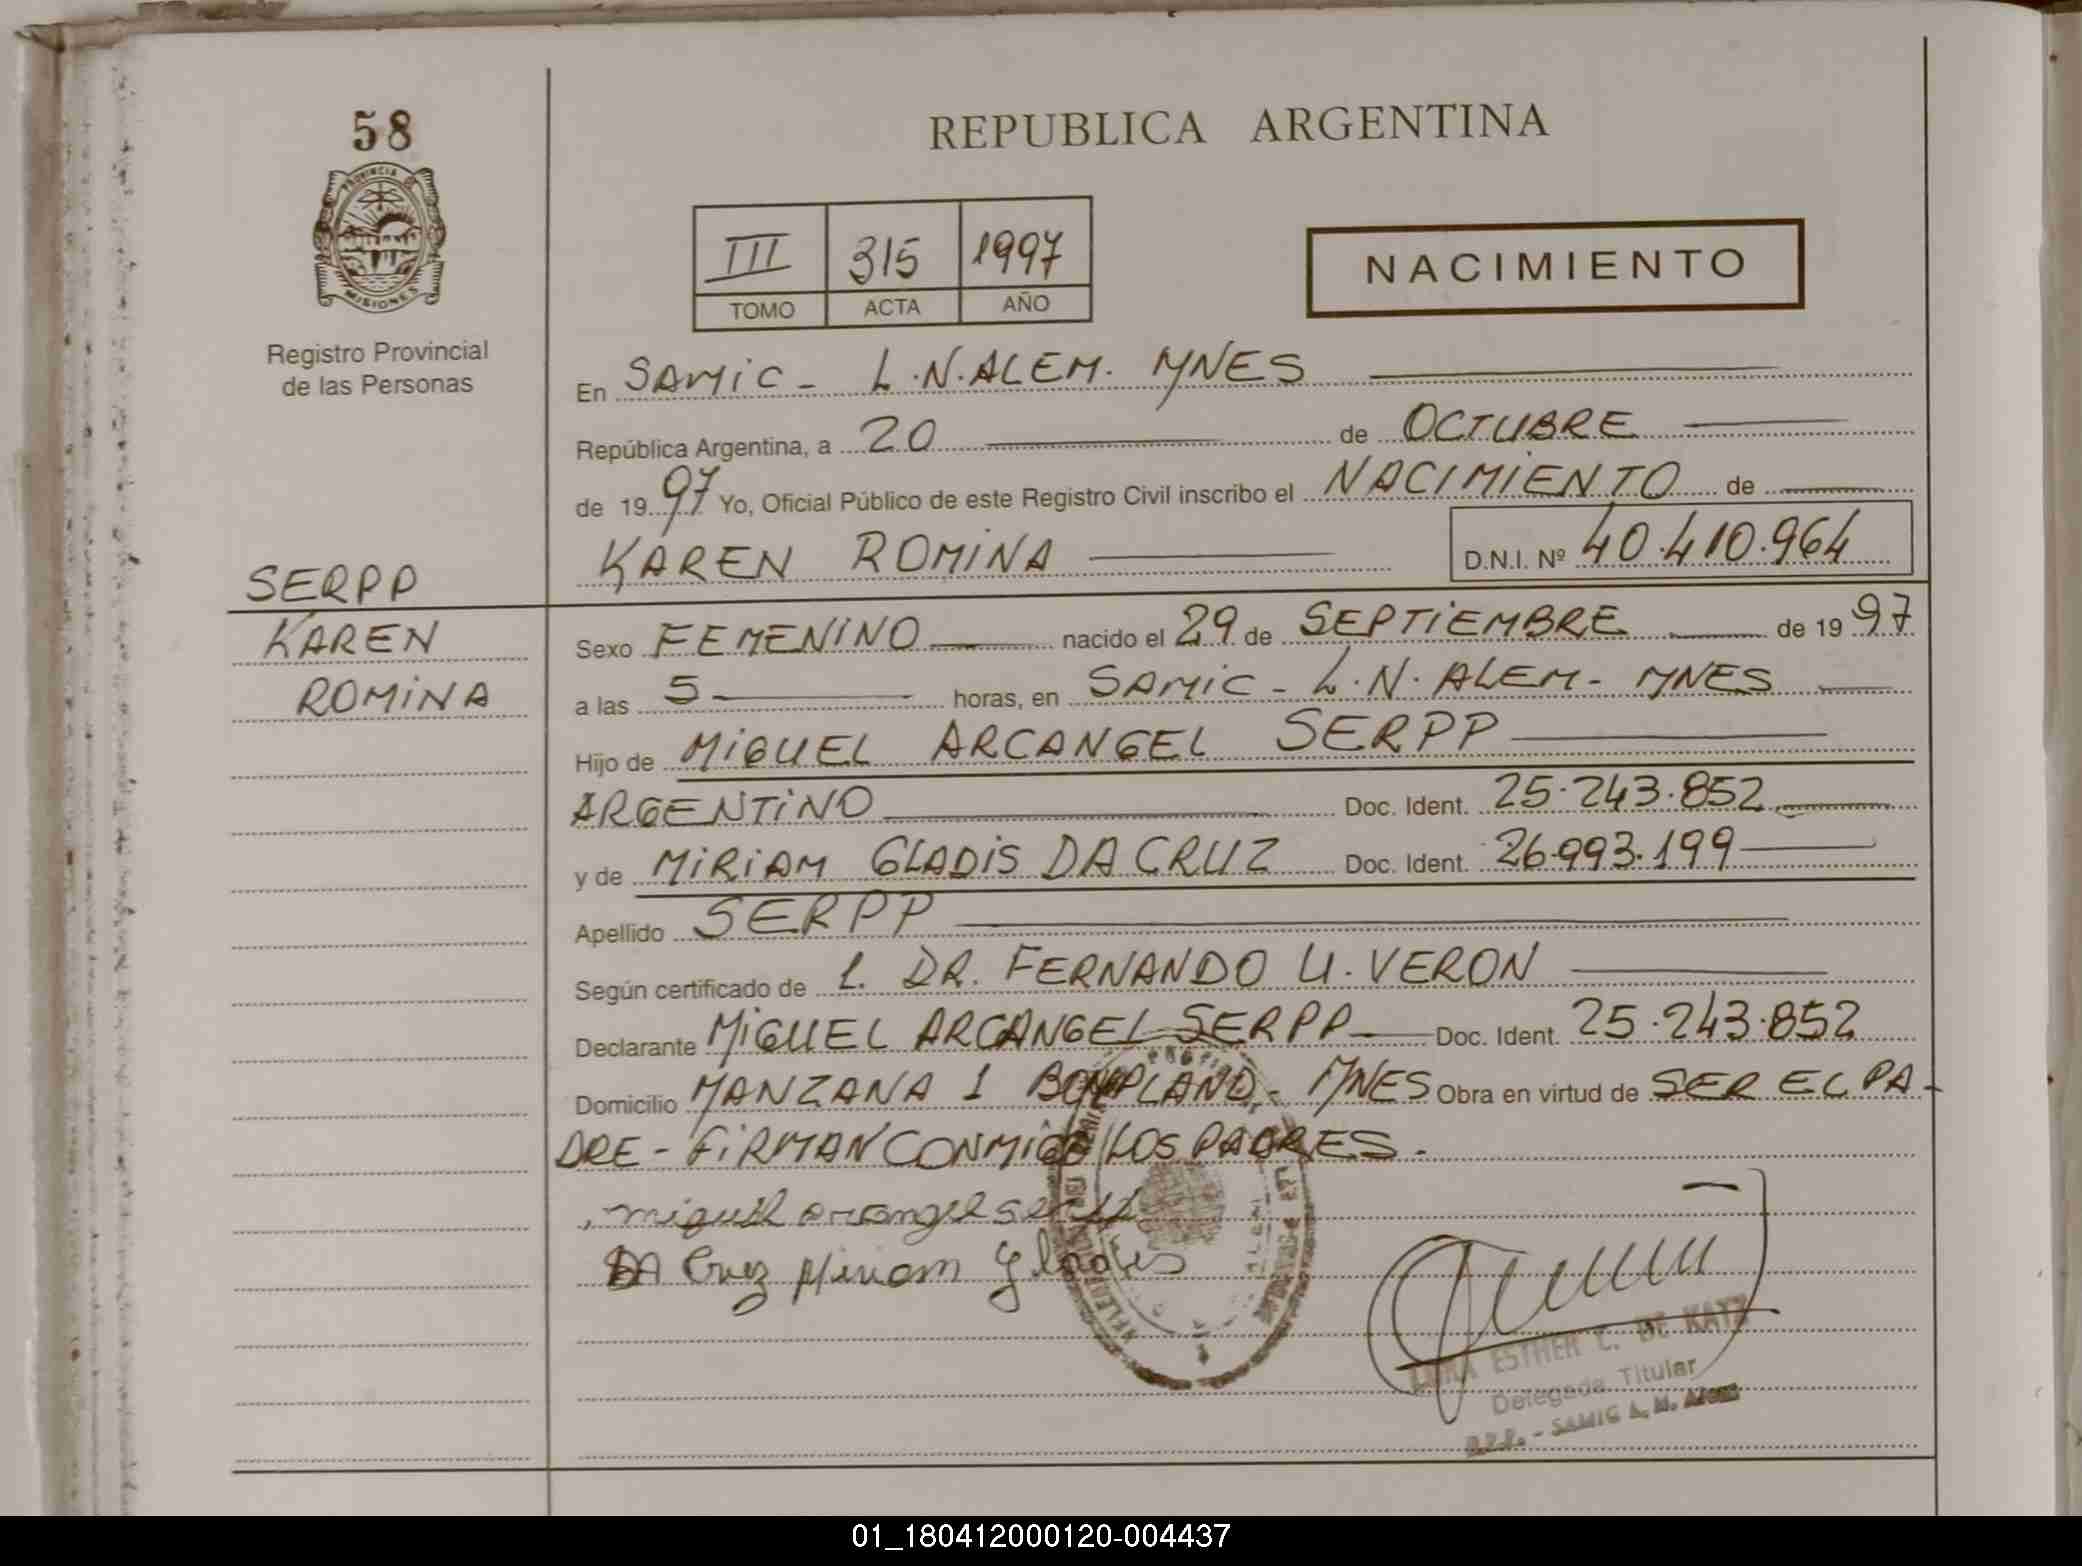 58
PROVINCIA DE
MISIONES
Registro Provincial
de las Personas
REPUBLICA ARGENTINA
III 315 1997
TOMO ACTA AÑO
NACIMIENTO
En SAMIC - L.N.ALEM. MNES
República Argentina, a 20 de OCTUBRE
de 1997 Yo, Oficial Público de este Registro Civil inscribo el NACIMIENTO de
KAREN ROMINA D.N.I. Nº 40.410.964
SERPP
KAREN
ROMINA
Sexo FEMENINO nacido el 29 de SEPTIEMBRE de 1997
a las 5 horas, en SAMIC - L.N. ALEM - MNES
Hijo de MIGUEL ARCANGEL SERPP
ARGENTINO Doc. Ident. 25.243.852
y de MIRIAM GLADIS DA CRUZ Doc. Ident. 26.993.199
Apellido SERPP
Según certificado de 1. DR. FERNANDO U. VERON
Declarante MIGUEL ARCANGEL SERPP Doc. Ident. 25.243.852
Domicilio MANZANA 1 BONPLAND - MNES Obra en virtud de SER EL PA-
DRE - FIRMAN CONMIGO LOS PADRES.
miguel arcangel
DA Cruz Miriam Gladis
ESTHER C. DE KATZ
Delegada Titular
R.P.P. - SAMIC L. N. ALEM
01_180412000120-004437